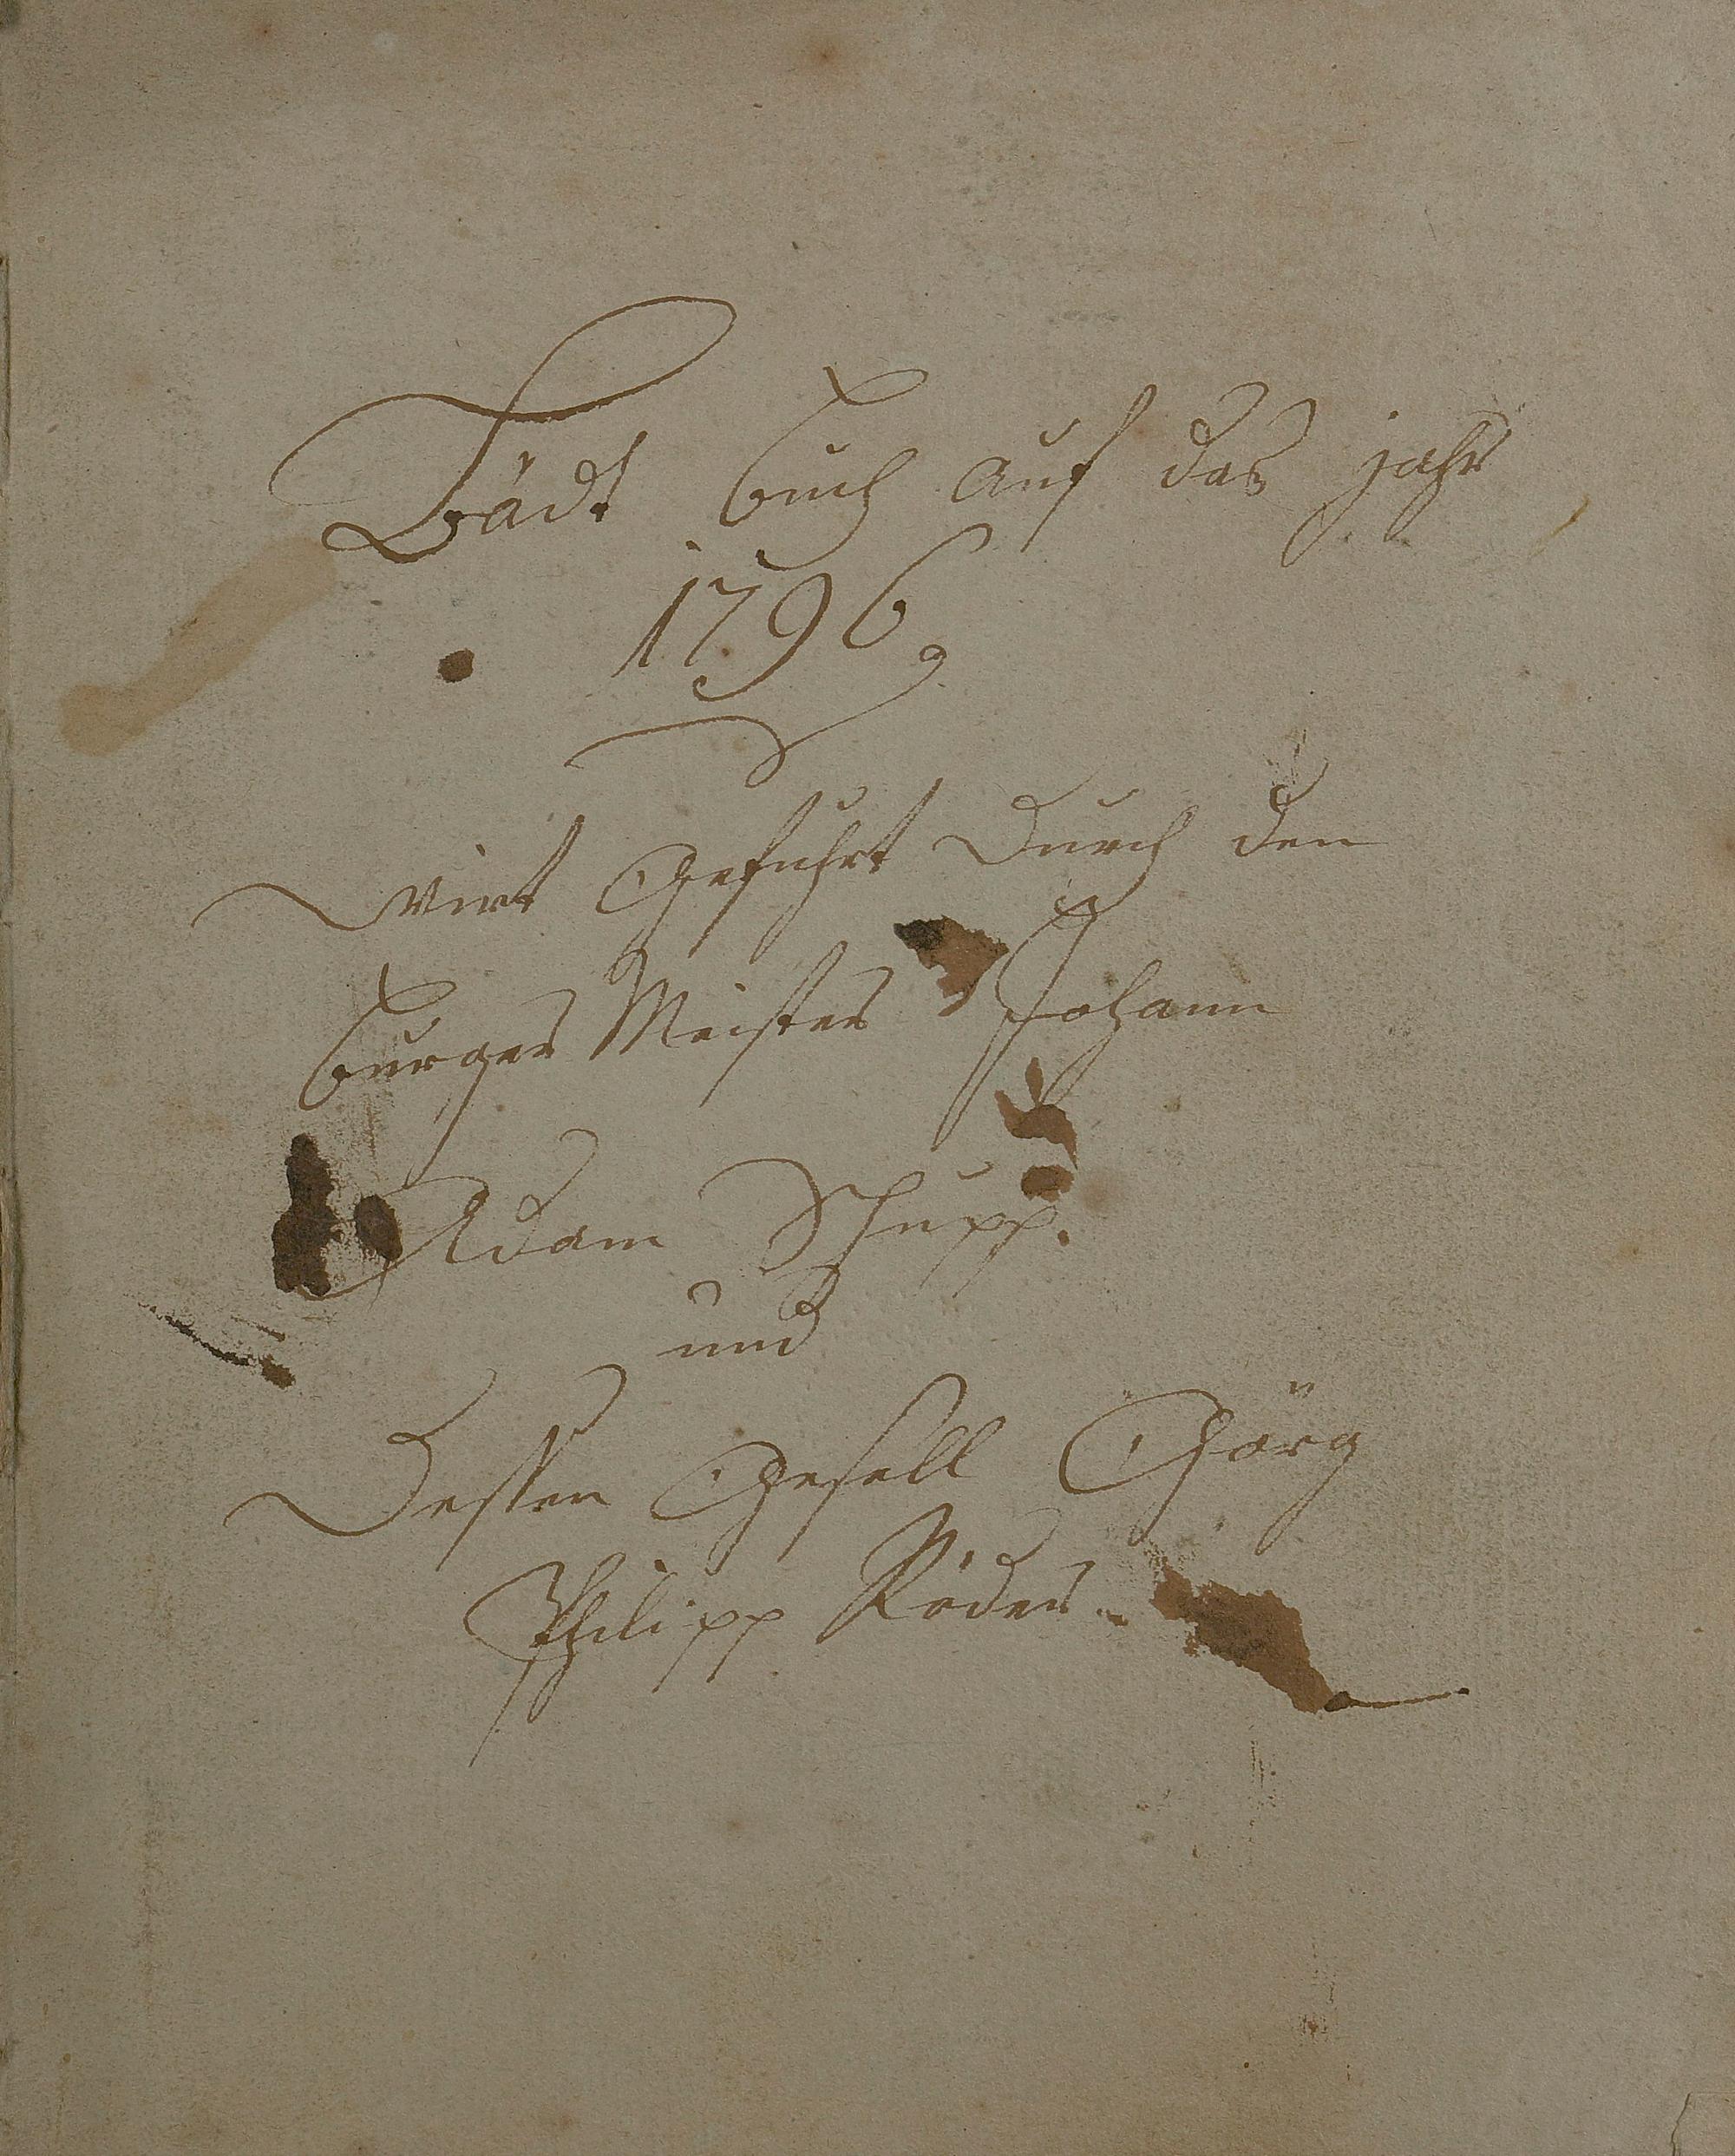 Bädt buch auf das jahr
1796
Wirt Geführt Durch den
burger Meister Johann
Adam Schupp.
und
Dessen Gesell Görg
Philipp Röder